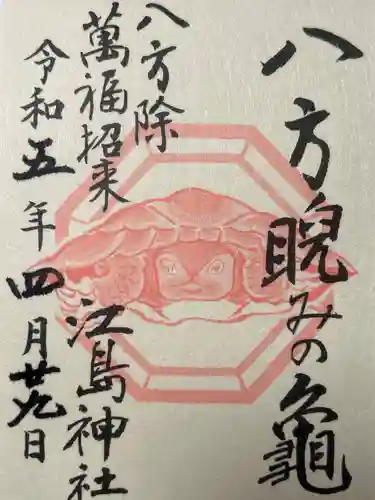 八方睨みの亀
八方除
萬福招来
江島神社
令和五年四月廿九日